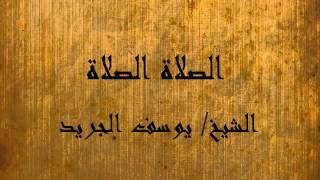 الصلاة الصلاة
الشيخ/ يوسف الجريد